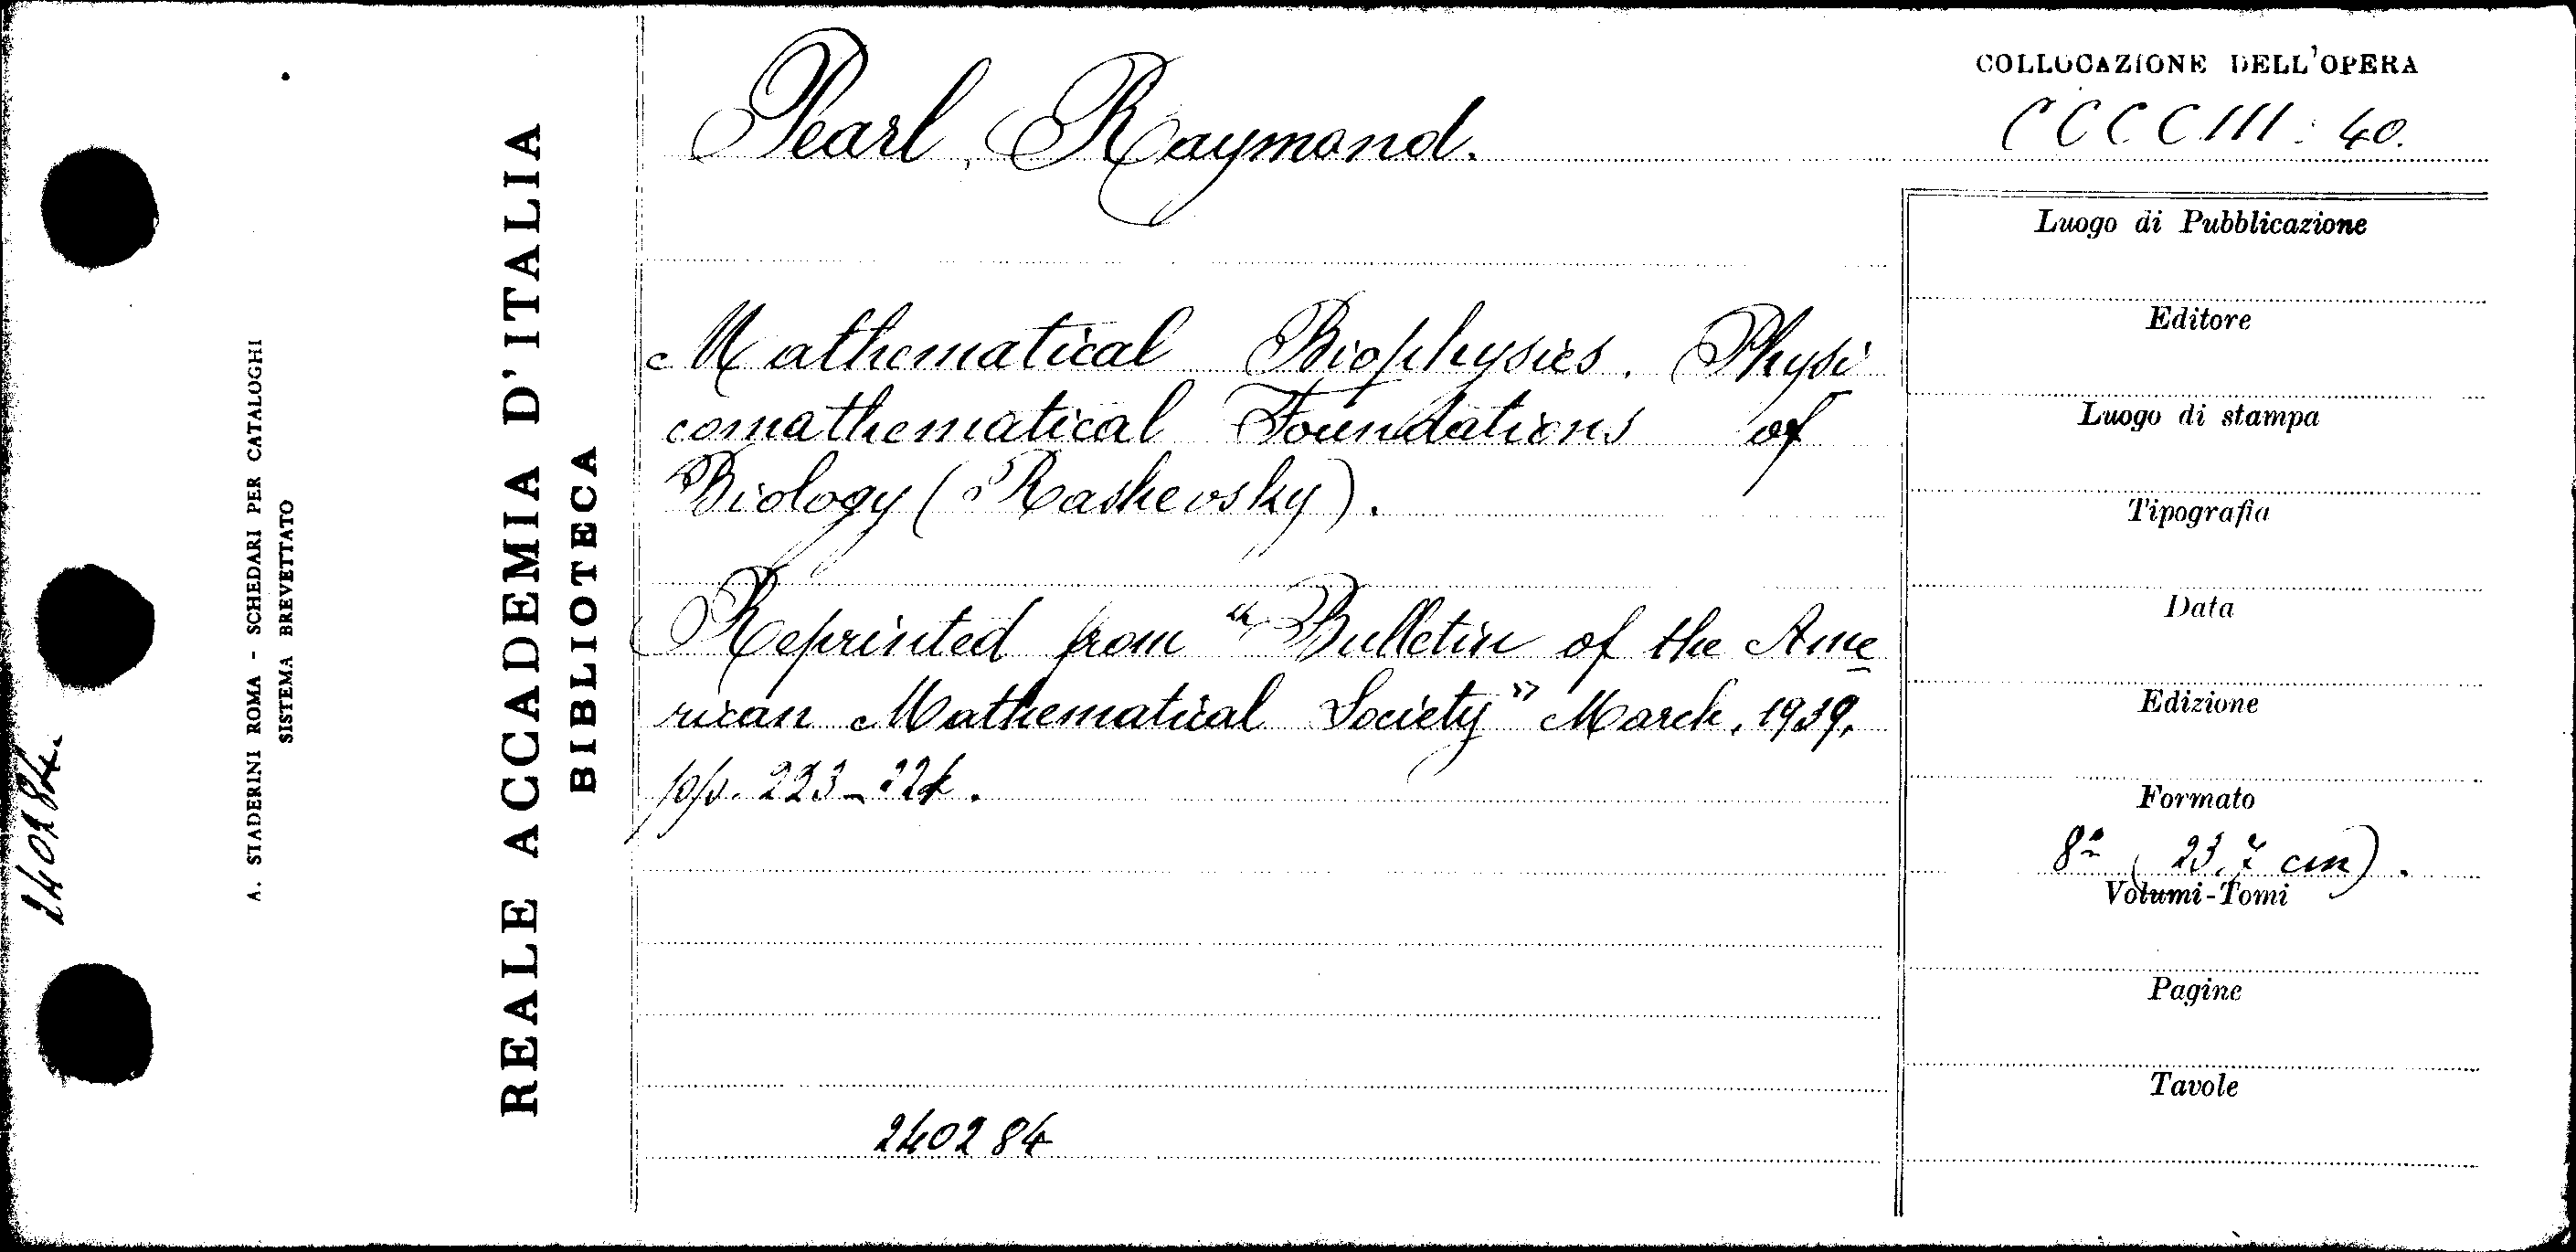 Pearl, Raymond.
Mathematical Biophysics. Physi
comathematical Foundations of
Biology (Rashevsky).
Reprinted from "Bulletin of the Ame
rican Mathematical Society" March, 1939,
pp. 223-224.
240284
COLLOCAZIONE DELL'OPERA
CCCCIII: 40.
Luogo di Pubblicazione
Editore
Luogo di stampa
Tipografia
Data
Edizione
Formato
8º (23,7 cm).
Volumi-Tomi
Pagine
Tavole
REALE ACCADEMIA D'ITALIA
BIBLIOTECA
A. STADERINI ROMA - SCHEDARI PER CATALOGHI
SISTEMA BREVETTATO
240284.